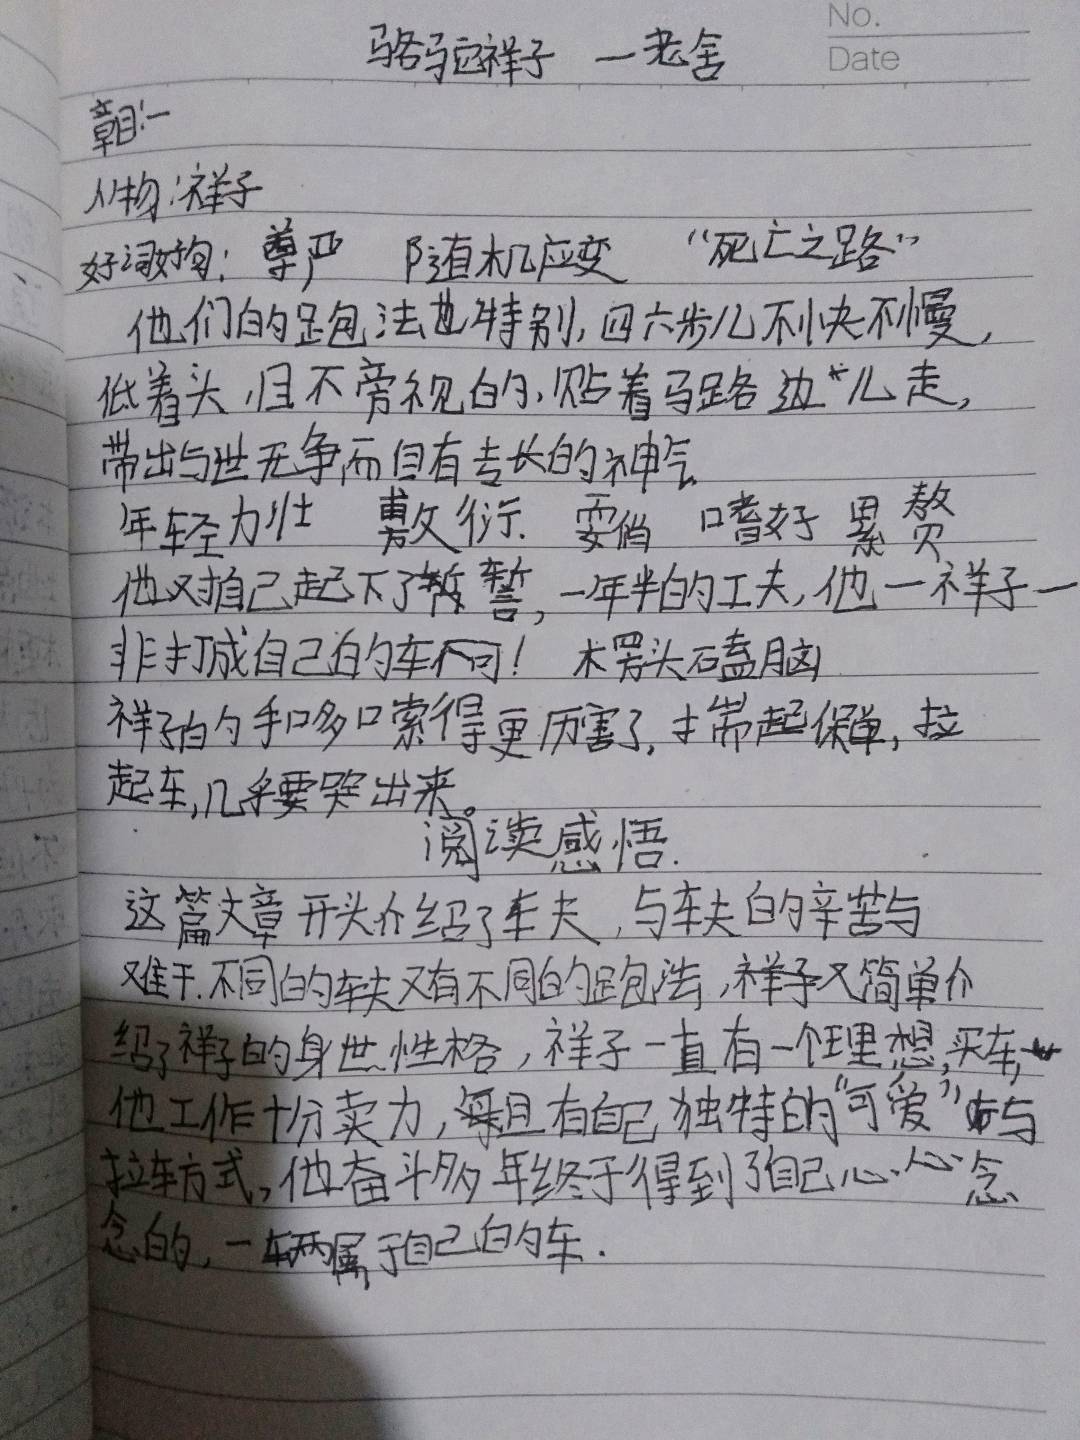 No.
Date
骆驼祥子 一老舍
章目:一
人物:祥子
好词好句: 尊严 随机应变 “死亡之路”
他们的跑法也特别,四六步儿不快不慢,
低着头,目不旁视的,贴着马路边儿走,
带出与世无争而自有专长的神气
年轻力壮 敷衍. 耍俏 嗜好 累赘
他对自己起下了誓,一年半的工夫,他一祥子一
非打成自己的车不可! 木楞头磕脑
祥子的手哆口索得更厉害了,揣起保单,拉
起车,几乎要哭出来。
阅读感悟.
这篇文章开头介绍了车夫,与车夫的辛苦与
难干.不同的车夫又有不同的跑法,祥子又简单介
绍了祥子的身世性格,祥子一直有一个理想,买车,
他工作十分卖力,每且有自己独特的“可爱”与
拉车方式,他奋斗多年终于得到了自己心心念
念的,一辆属于自己的车.